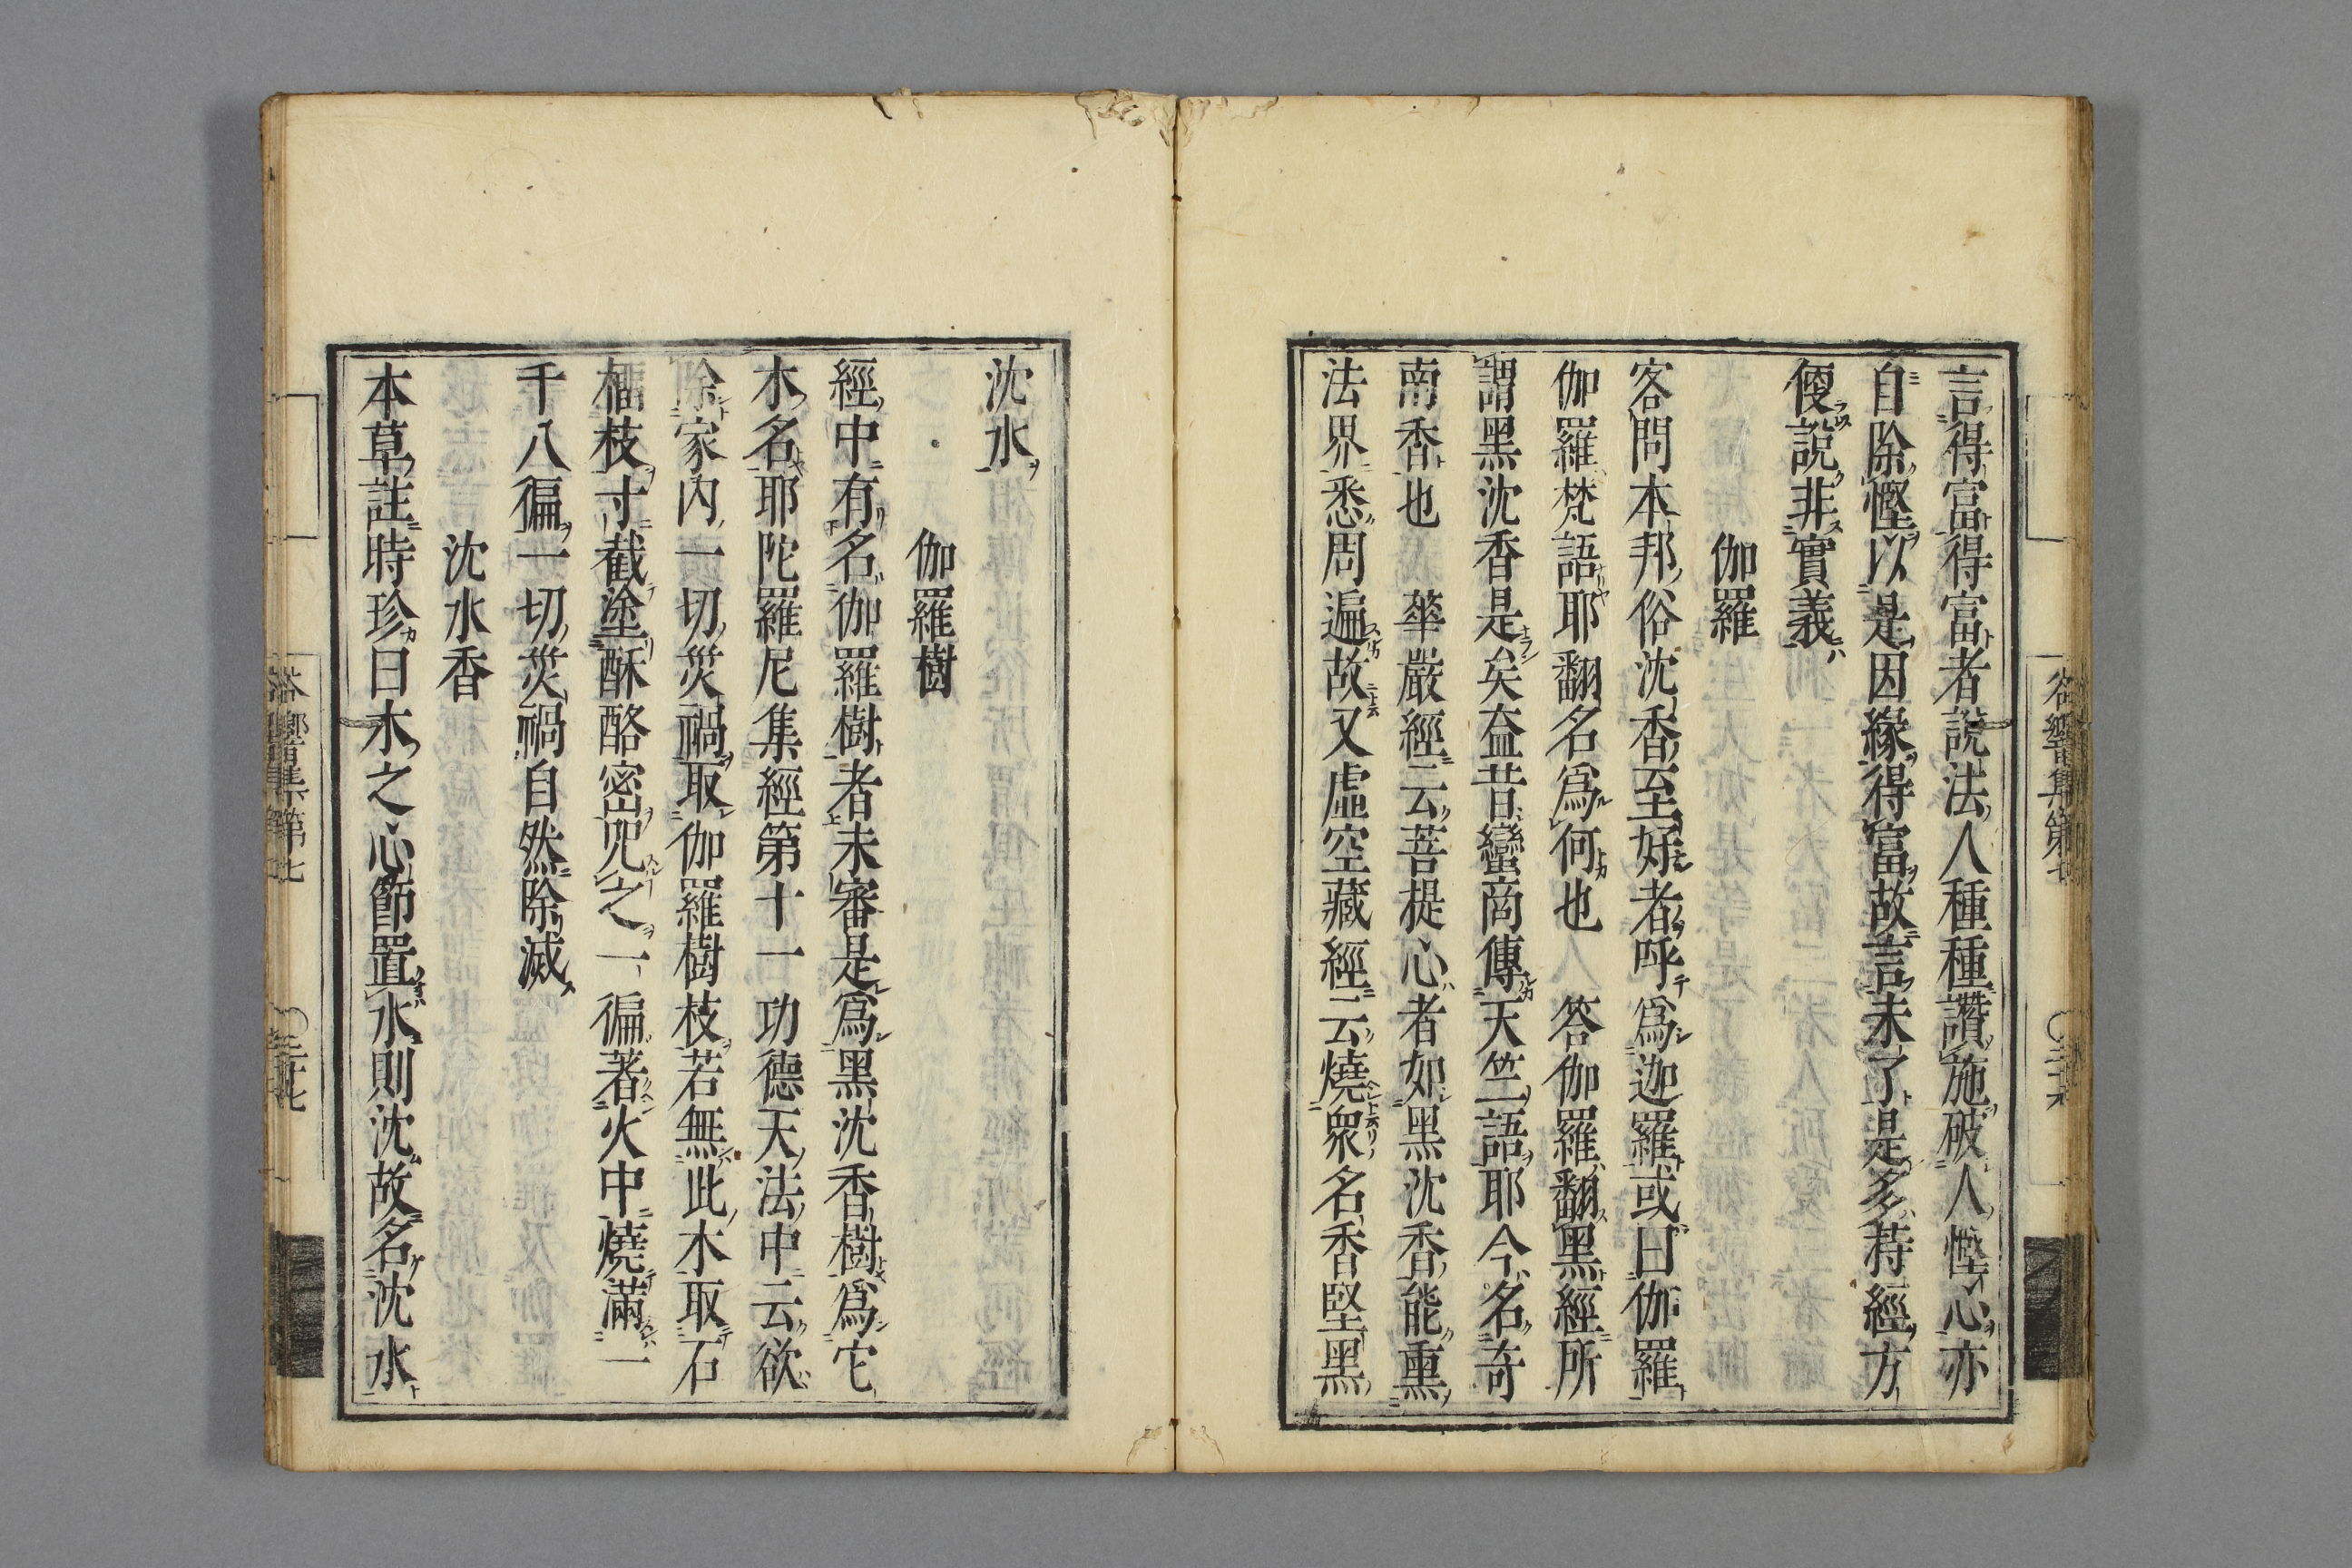 言得富得富者說法人種種讚施破人慳心亦
自除慳以是因緣得富故言未了是多待經方
便說非實義
伽羅
客問本邦俗沈香至好者呼爲迦羅或曰伽羅
伽羅梵語耶翻名爲何也 答伽羅翻黑經所
謂黑沈香是矣盇昔蠻商傳天竺語耶今名奇
南香也 華嚴經云菩提心者如黑沈香能熏
法界悉周遍故又虛空藏經云燒衆名香堅黑
沈水
伽羅樹
經中有名伽羅樹者未審是爲黑沈香樹爲它
木名耶陀羅尼集經第十一功德天法中云欲
除家內一切災禍取伽羅樹枝若無此木取石
榴枝寸截塗酥酪密咒之一徧著火中燒滿一
千八徧一切災禍自然除滅
沈水香
本草註時珍曰木之心節置水則沈故名沈水
谷響集第七